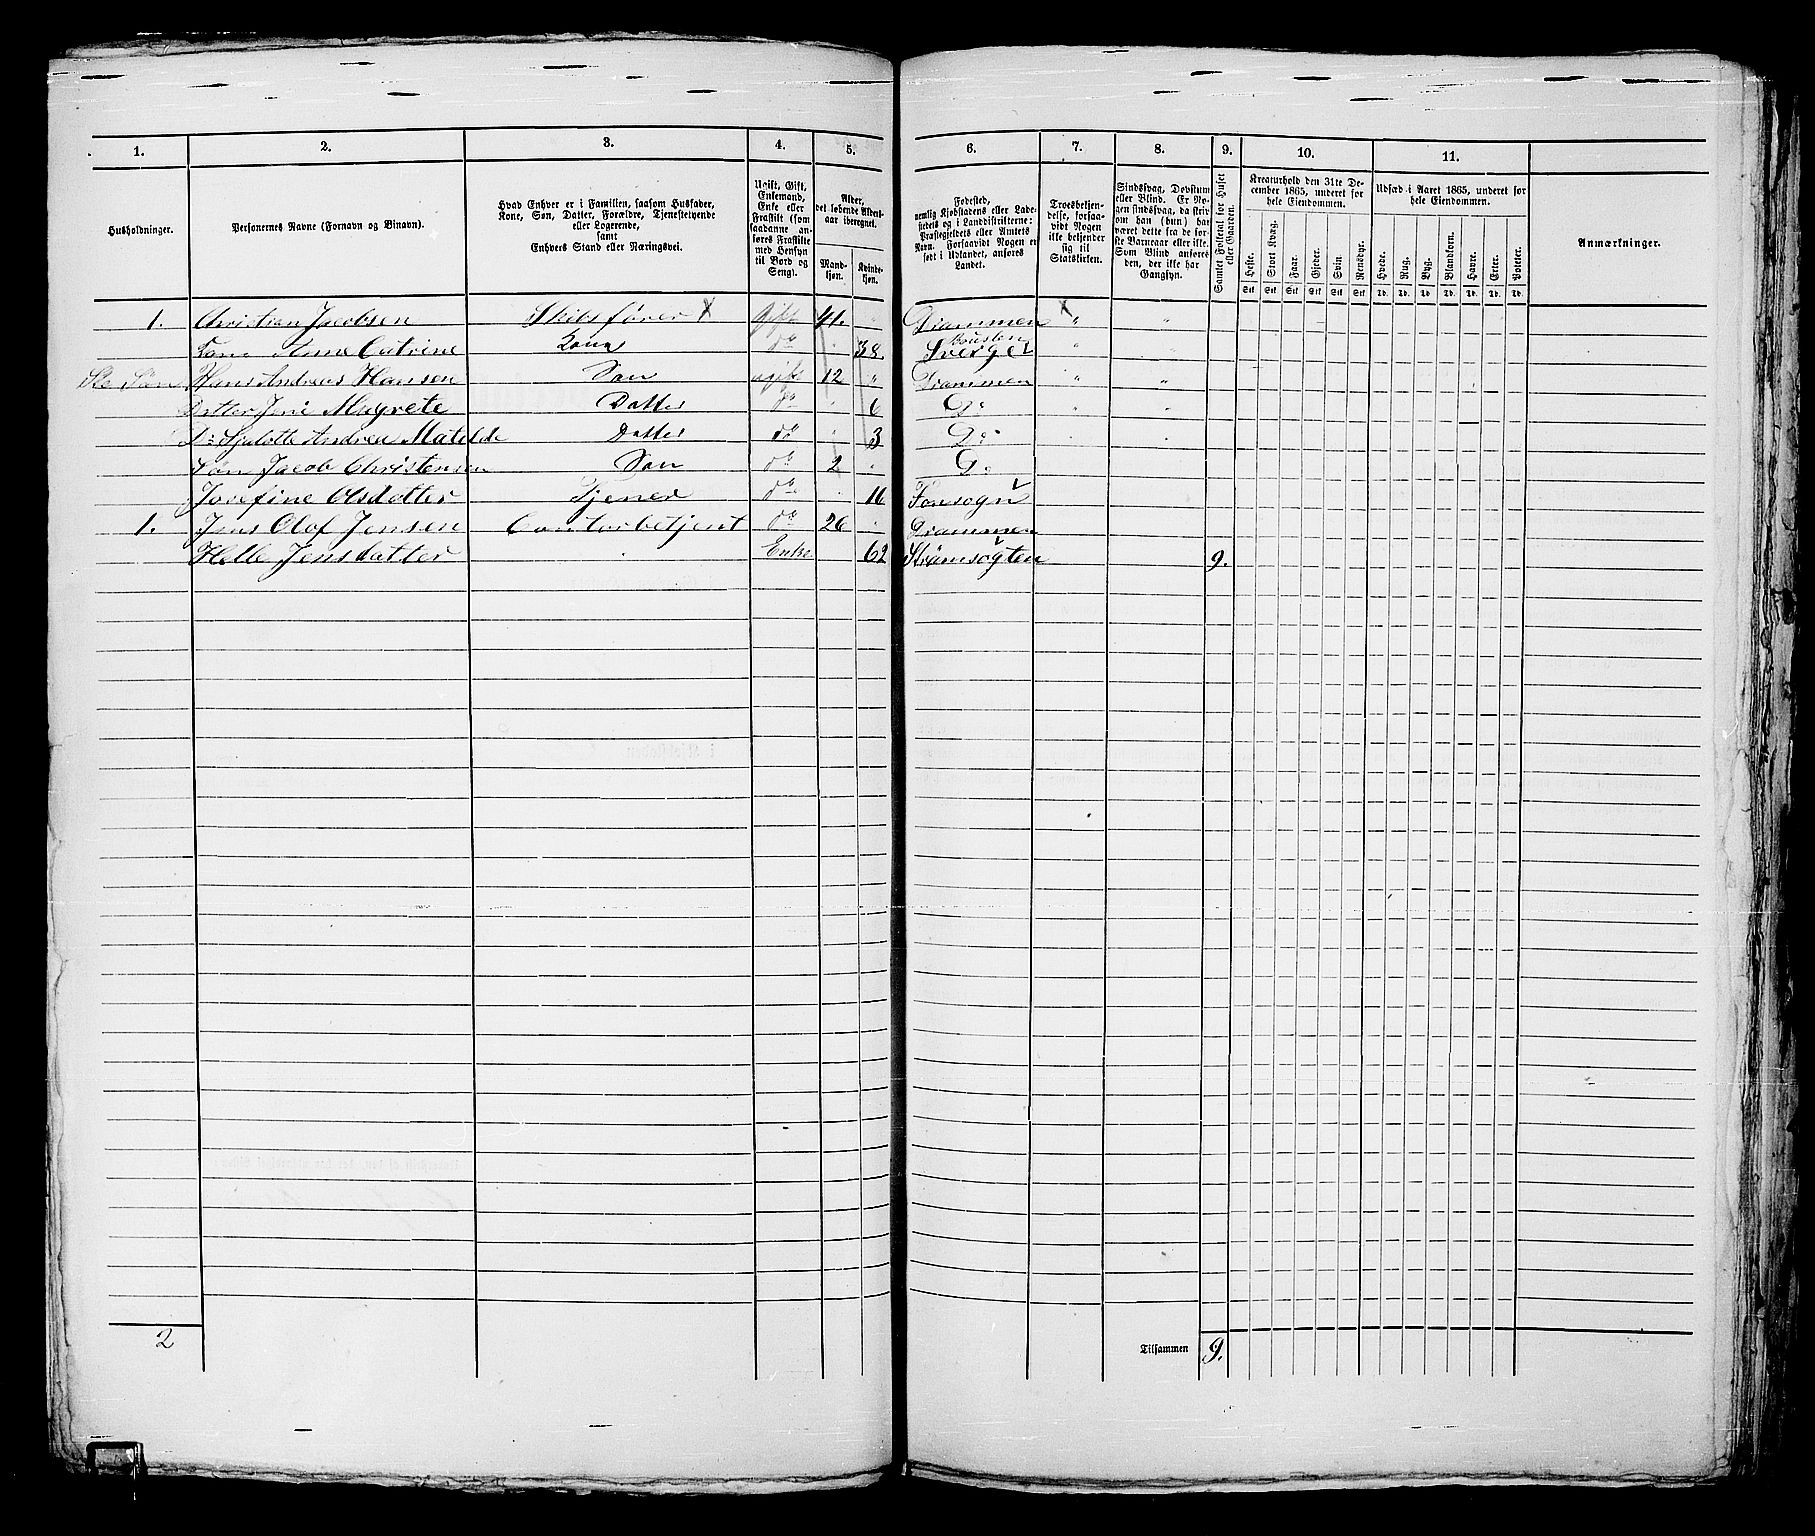 1. 2. 3. 4. 5. 6. 7. 8. 9. 10. 11.
Husholdninger.
Personernes Navne (Fornavn og Binavn).
Hvad Enhver er i Familien, saasom Husfader,
Kone, Søn, Datter, Forældre, Tjenestetyende
eller Logerende,
samt
Enhvers Stand eller Næringsvei.
Ugift, Gift,
Enkemand,
Enke eller
Fraskilt (som
saadanne an-
føres Fraskilte
med Hensyn
til Bord og
Seng).
Alder,
det løbende Alders-
aar iberegnet.
Mand-
kjøn.
Kvinde-
kjøn.
Fødested,
nemlig Kjøbstadens eller Lade-
stedets og i Landdistrikterne:
Præstegjeldets eller Amtets
Navn. Forsaavidt Nogen er
født i Udlandet, anføres
Landet.
Troesbekjen-
delse, forsaa-
vidt Nogen
ikke bekjender
sig til
Statskirken.
Sindssvag, Døvstum
eller Blind. Er No-
gen sindssvag, da skriv
om han (hun) har
været dette fra de før-
ste Barneaar eller ikke.
Som Blind anføres
den, der ikke har
Gangsyn.
Samlet Folketal for Huset
eller Gaarden.
Kreaturhold den 31te De-
cember 1865, underet for
hele Eiendommen.
Heste. Stort Kvæg. Faar. Gjeder. Svin. Rensdyr.
Stk Stk Stk Stk Stk Stk
Udsæd i Aaret 1865, underet for
hele Eiendommen.
Hvede. Rug. Byg. Blandkorn. Havre. Erter. Poteter.
Td. Td. Td. Td. Td. Td. Td.
Anmærkninger.
1. Christian Jacobsen Skibsfører X Gift 41. " Drammen X " "
Kone Anne Catrine Kone do " 38. Sverge " "
Ste Søn Hans Andreas Hansen Søn ugift 12 " Drammen " "
Datter Jene Magrete Datter do " 6 Do " "
Do Sjalotte Andrea Matilde Datter do " 3 Do
Søn Jacob Christensen Søn do 2 " Do
Josefine Olsdatter Tjener do 16 Fonsogn
1. Jens Olof Jensen Contorbetjent do 26 " Drammen
Helle Jensdatter Enke 62 Strømsogten 9.
2 Tilsammen 9.